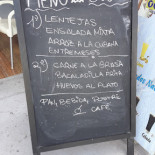 MENÚ
1º) LENTEJAS
ENSALADA MIXTA
ARROZ A LA CUBANA
ENTREMESES
2º) CARNE A LA BRASA
BACALADILLA FRITA
HUEVOS AL PLATO
PAN, BEBIDA, POSTRE
Ó CAFÉ